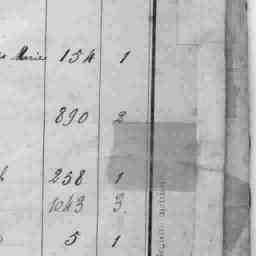 Marie 154 1
890 2
258 1
1043 3
5 1